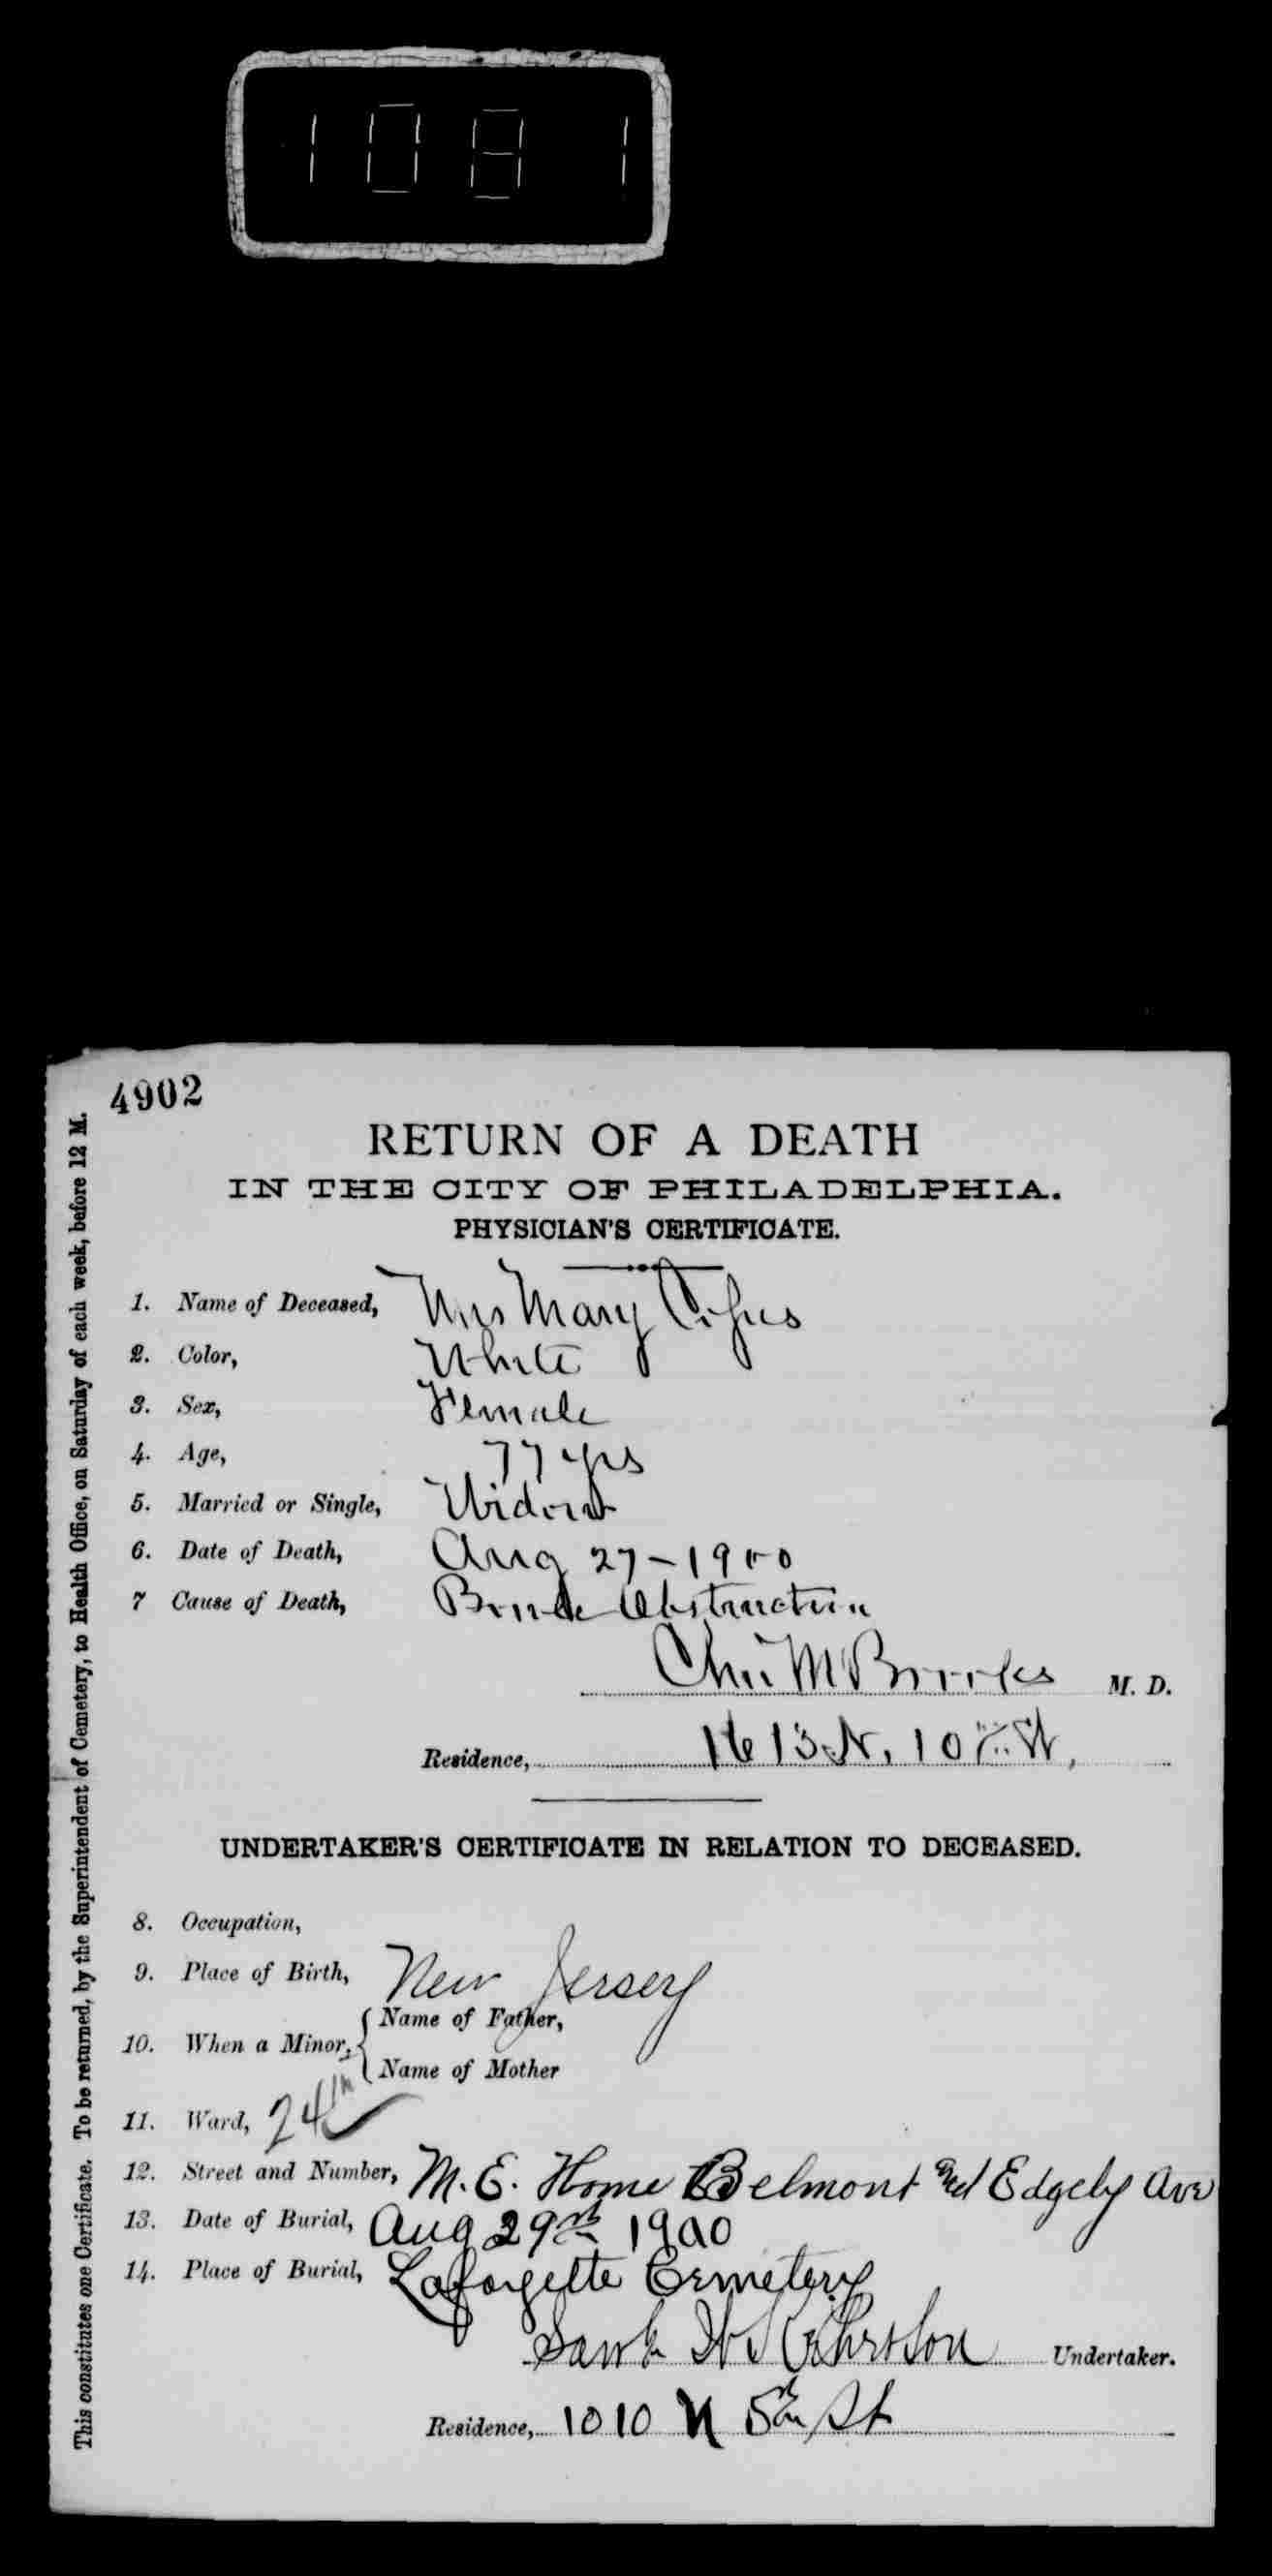 1081
4902
RETURN OF A DEATH
IN THE CITY OF PHILADELPHIA.
PHYSICIAN'S CERTIFICATE.
1. Name of Deceased, Mrs Mary
2. Color, White
3. Sex, Female
4. Age, 77 yrs
5. Married or Single, Widow
6. Date of Death, Aug 27-1900
7 Cause of Death, Obstruction
M. D.
Residence, 1613 N. 10th St,
UNDERTAKER'S CERTIFICATE IN RELATION TO DECEASED.
8. Occupation,
9. Place of Birth, New Jersey
10. When a Minor, { Name of Father,
Name of Mother
11. Ward, 24th
12. Street and Number, M. E. Home Belmont and Edgely Ave
13. Date of Burial, Aug 29th 1900
14. Place of Burial, Lafayette Cemetery
Undertaker.
Residence, 1010 N 5th St
This constitutes one Certificate. To be returned, by the Superintendent of Cemetery, to Health Office, on Saturday of each week, before 12 M.